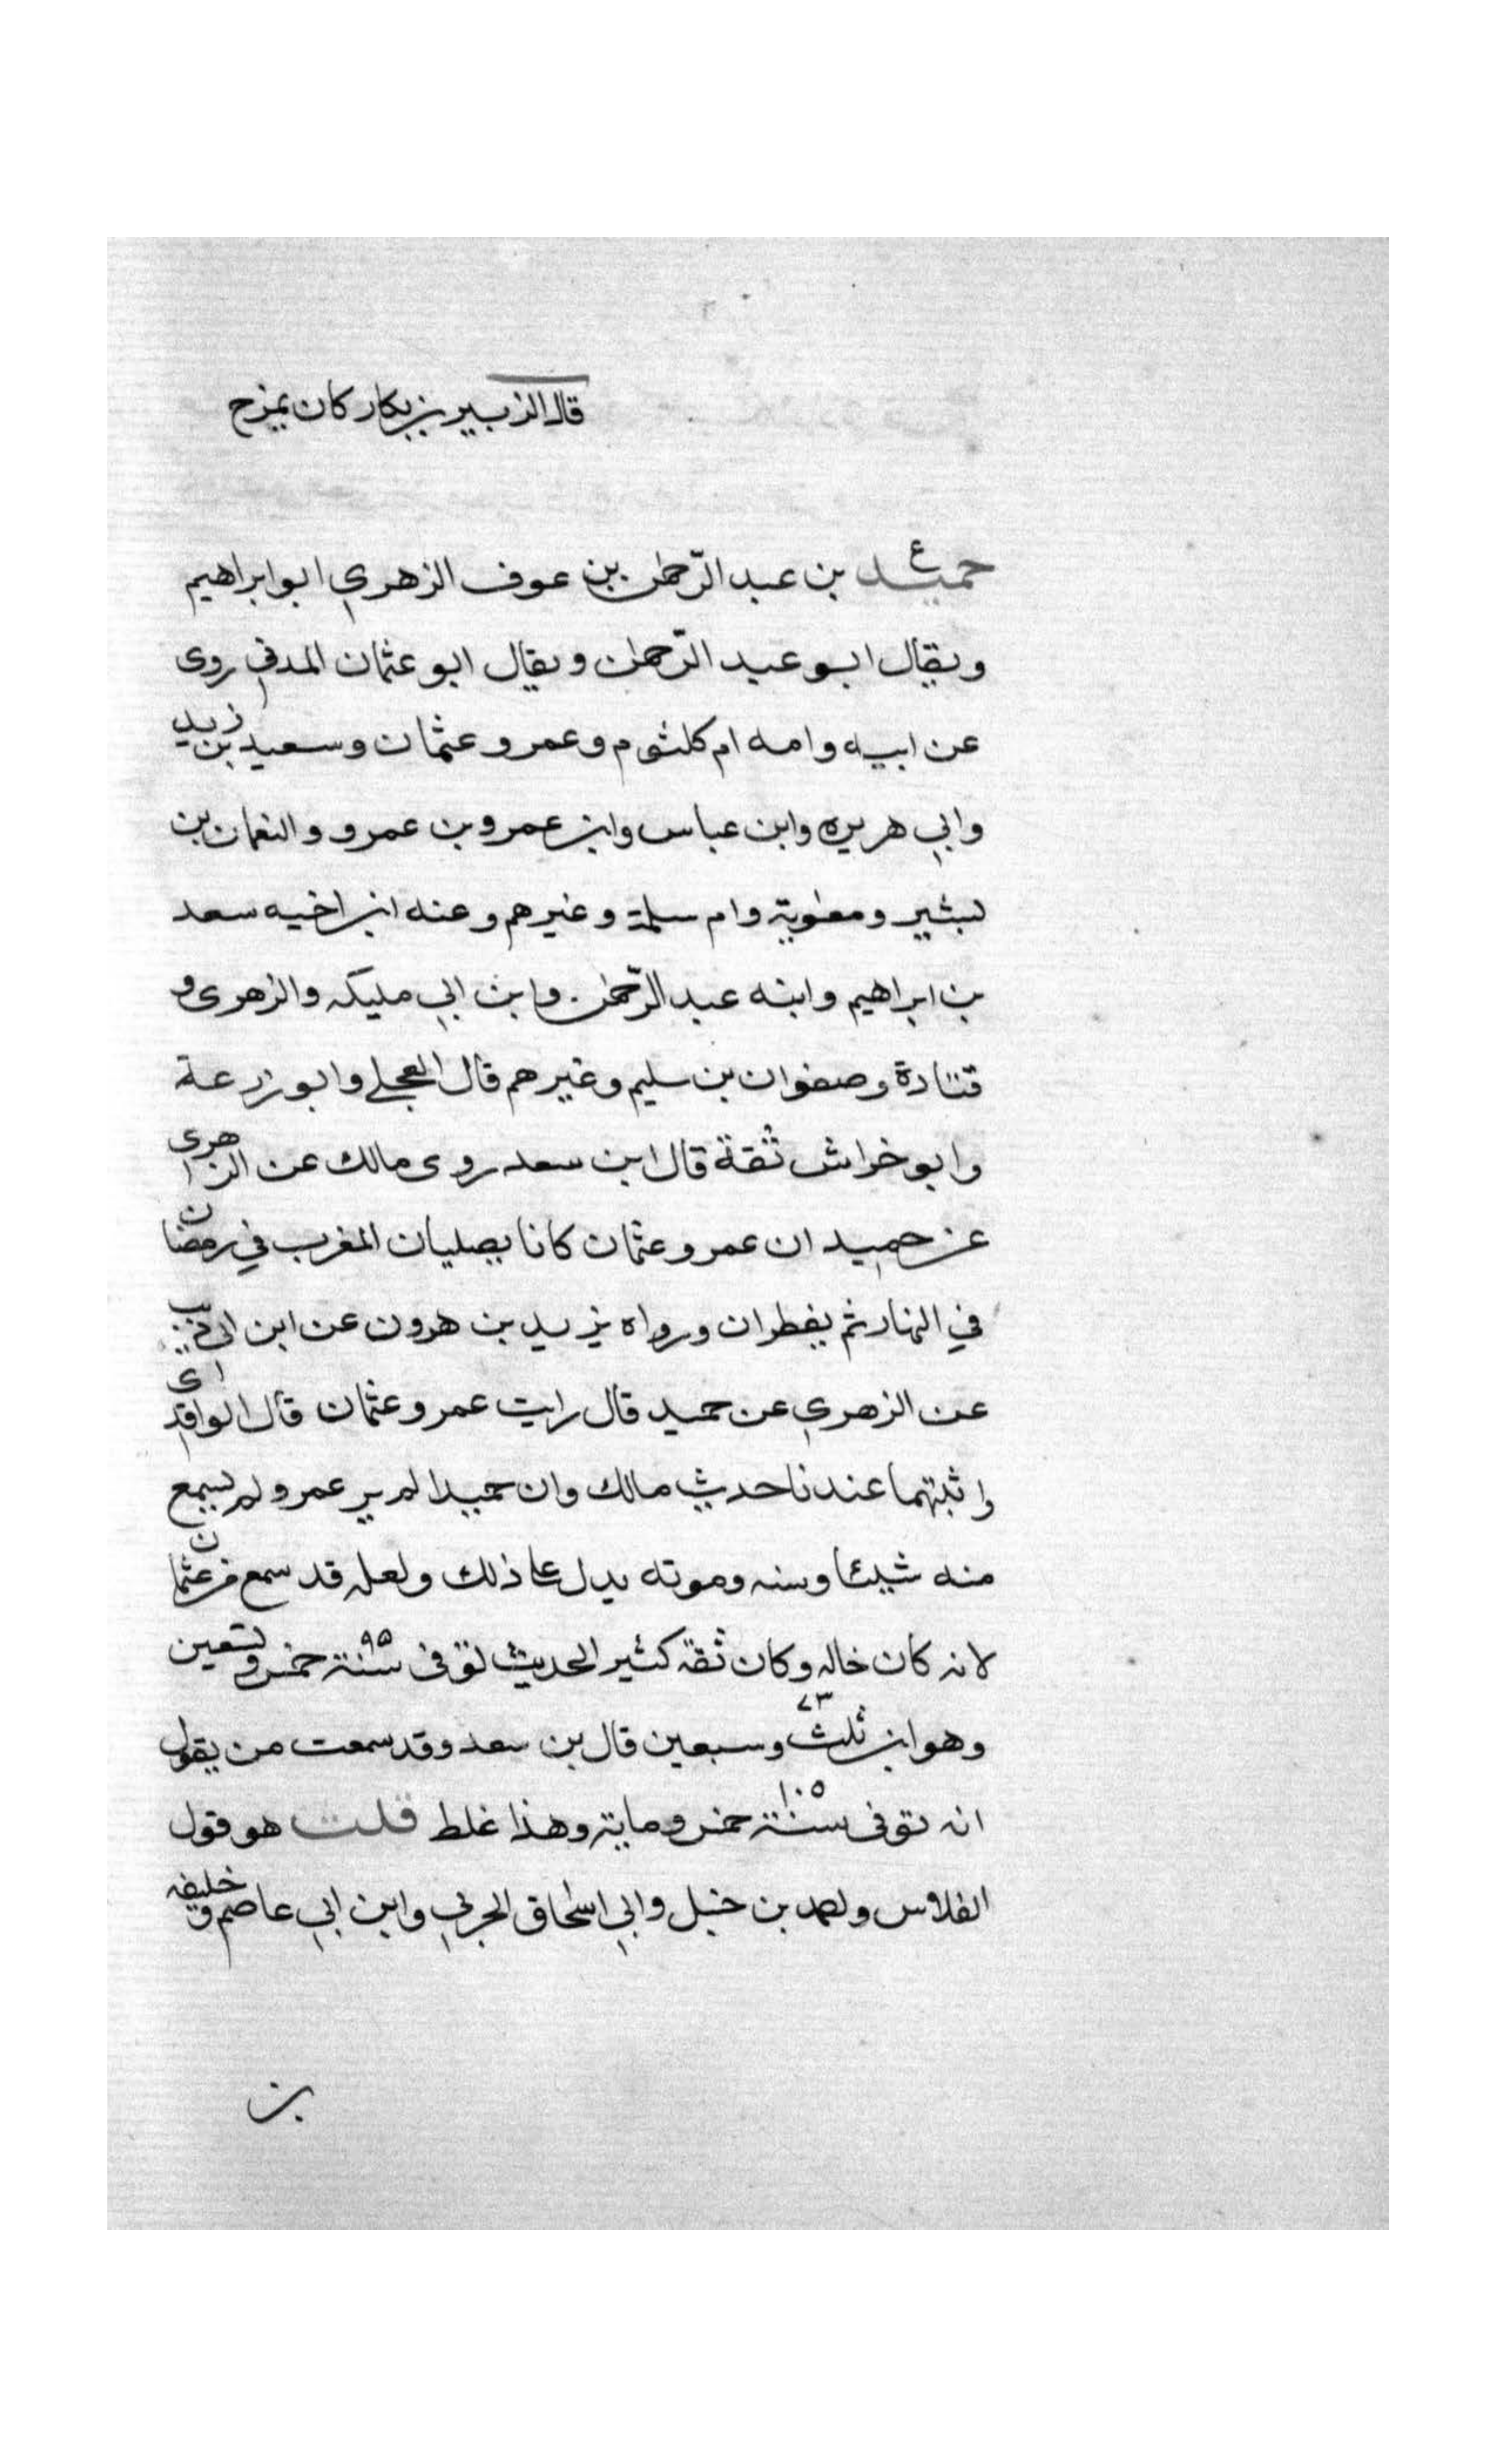 قال الزبير بن بكار كان يمزح
ع
حميد بن عبد الرحمن بن عوف الزهري ابو ابراهيم
ويقال ابو عبد الرحمن ويقال ابو عثمان المدني روى
عن ابيه وامه ام كلثوم وعمر وعثمان وسعيد بن زيد
وابي هريره وابن عباس وابن عمر وبن عمرو والنعمان بن
بشير ومعوية وام سلمة وغيرهم وعنه ابن اخيه سعد
بن ابراهيم وابنه عبد الرحمن وابن ابي مليكه والزهرى و
قتادة وصفوان بن سليم وغيرهم قال العجلي وابو زرعة
وابو خراش ثقة قال ابن سعد روى مالك عن الزهرى
عن حميد ان عمر وعثمان كانا يصليان المغرب في رمضان
في النهار ثم يفطران ورواه يزيد بن هرون عن ابن ابي ذيب
عن الزهري عن حميد قال رايت عمر وعثمان قال الواقدى
واثبتهما عندنا حديث مالك وان حميدا لم ير عمر ولم يسمع
منه شيئا وسنه وموته يدل علي ذلك ولعله قد سمع من عثمان
لانه كان خاله وكان ثقة كثير الحديث توفى سنة ٩٥ خمس وتسعين
وهو ابن ٧٣ ثلث وسبعين قال بن سعد وقد سمعت من يقول
انه توفى سنة ١٠٥ خمس وماية وهذا غلط قلت هو قول
الفلاس واحمد بن حنبل وابي اسحاق الحربي وابن ابي عاصم وخليفه
بن